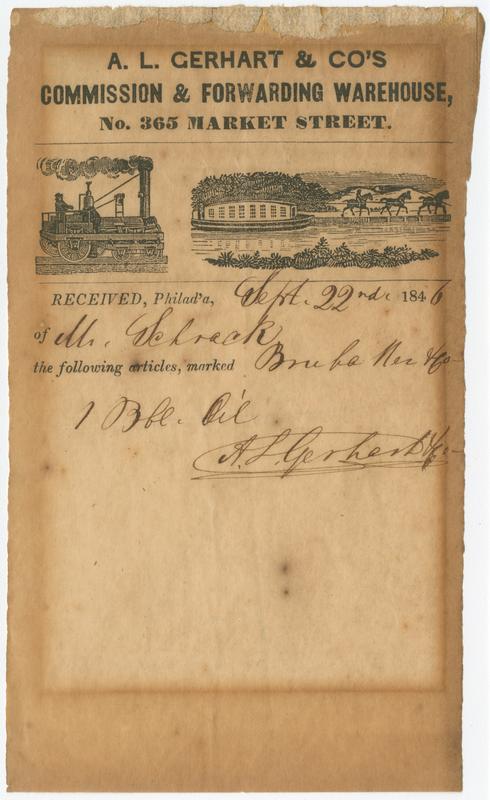 A. L. GERHART & CO'S
COMMISSION & FORWARDING WAREHOUSE,
No. 365 MARKET STREET.
RECEIVED, Philad'a, Sept. 22nd. 1846
of Mr. Schrack
the following articles, marked Brubaker & Co
1 Bbl. Oil
A. L. Gerhart & Co